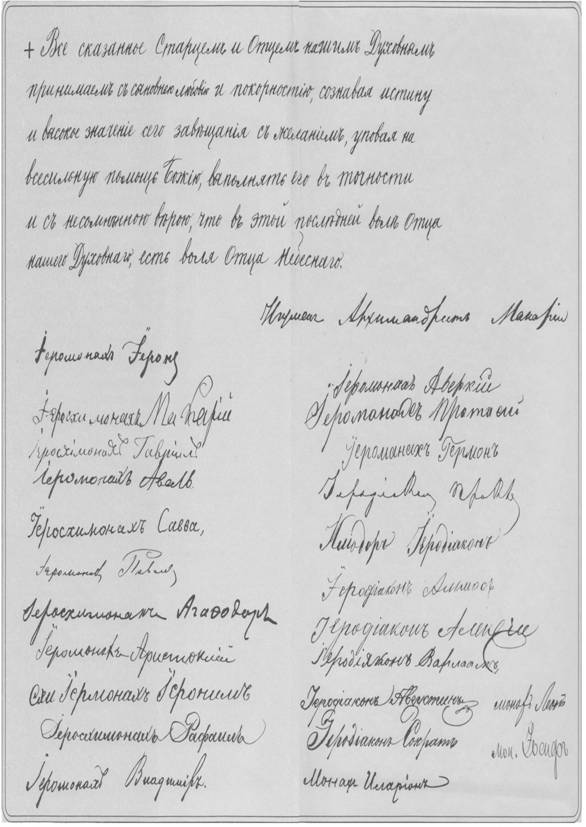 + Все сказанное Старцемъ и Отцемъ нашимъ Духовнымъ
принимаемъ съ сыновнею любовію и покорностію, сознавая истину
и высокое значеніе сего завѣщанія съ желаніемъ, уповая на
всесильную помощь Божію, выполнять его въ точности
и съ несомнѣнною вѣрою, что въ этой послѣдней волѣ Отца
нашего Духовнаго, есть воля Отца Небеснаго.
Игуменъ Архимандритъ Макарій
Іеромонахъ
Іеросхимонахъ Макарій
Іеросхімонахъ Гавріилъ
Іеромонахъ
Іеросхимонахъ Савва,
Іеромонахъ Павелъ
Іеросхимонахъ Агаѳодоръ
Іеромонахъ Аристоклій
Схи Іермонахъ Іеронимъ
Іеросхимонахъ Рафаилъ
Іеромонахъ Владимиръ.
Іеромонахъ Аверкій
Іеромонахъ Протасій
Іеромонахъ Гермонъ
Іеродіаконъ
Іеродіаконъ
Іеродіаконъ
Іеродіаконъ
Іеродіяконъ Варлаамъ
Іеродіаконъ Августинъ
Іеродіаконъ Сократъ
Монахъ Иларіонъ
монахъ
мон.